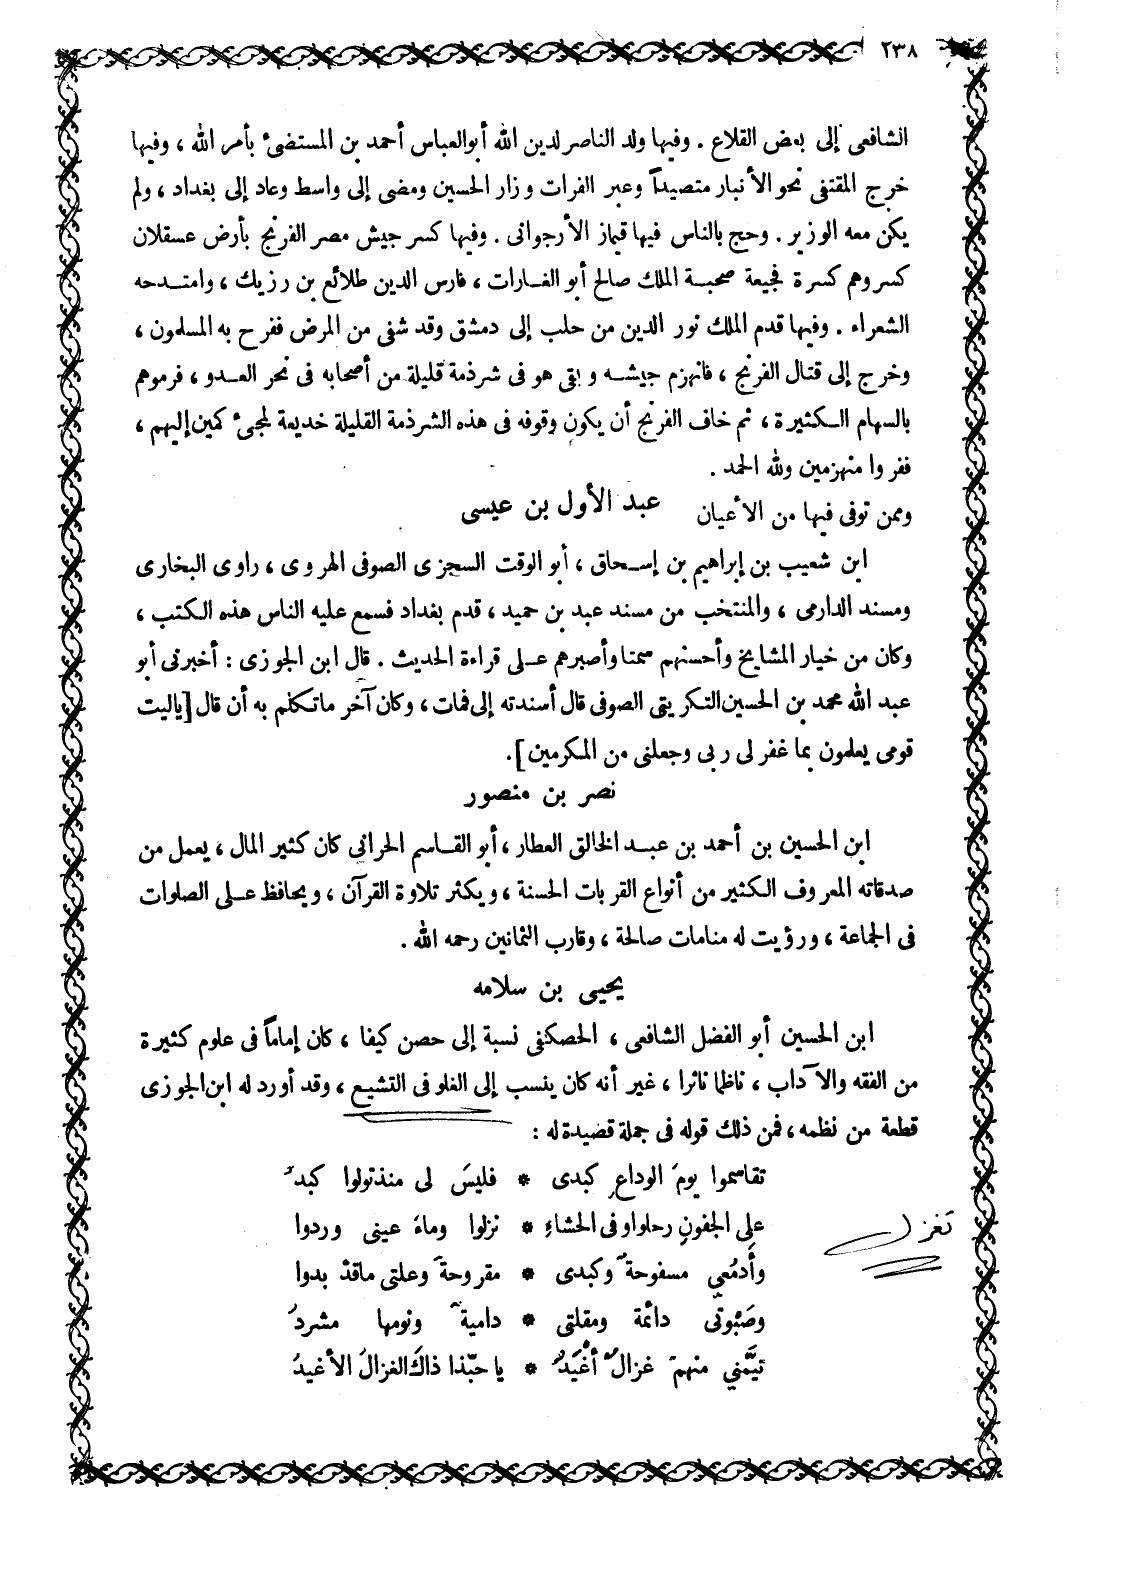 ٢٣٨
الشافعى إلى بعض القلاع . وفيها ولد الناصر لدين الله أبو العباس أحمد بن المستضىء بأمر الله ، وفيها
خرج المقتفى نحو الأنبار متصيداً وعبر الفرات وزار الحسين ومضى إلى واسط وعاد إلى بغداد ، ولم
يكن معه الوزير . وحج بالناس فيها قيماز الأرجوانى . وفيها كسر جيش مصر الفرنج بأرض عسقلان
كسروهم كسرة فجيعة صحبة الملك صالح أبو الغارات ، فارس الدين طلائع بن رزيك ، وامتدحه
الشعراء . وفيها قدم الملك نور الدين من حلب إلى دمشق وقد شفى من المرض ففرح به المسلمون ،
وخرج إلى قتال الفرنج ، فانهزم جيشه وبقى هو فى شرذمة قليلة من أصحابه فى نحر العدو ، فرموهم
بالسهام الكثيرة ، ثم خاف الفرنج أن يكون وقوفه فى هذه الشرذمة القليلة خديعة لمجىء كمين إليهم ،
ففروا منهزمين ولله الحمد .
وممن توفى فيها من الأعيان عبد الأول بن عيسى
ابن شعيب بن إبراهيم بن إسحاق ، أبو الوقت السجزى الصوفى الهروى ، راوى البخارى
ومسند الدارمى ، والمنتخب من مسند عبد بن حميد ، قدم بغداد فسمع عليه الناس هذه الكتب ،
وكان من خيار المشايخ وأحسنهم سمتا وأصبرهم على قراءة الحديث . قال ابن الجوزى : أخبرنى أبو
عبد الله محمد بن الحسين التكريتى الصوفى قال أسندته إلى فمات ، وكان آخر ما تكلم به أن قال [ ياليت
قومى يعلمون بما غفر لى ربى وجعلنى من المكرمين ] .
نصر بن منصور
ابن الحسين بن أحمد بن عبد الخالق العطار ، أبو القاسم الحرانى كان كثير المال ، يعمل من
صدقاته المعروف الكثير من أنواع القربات الحسنة ، ويكثر تلاوة القرآن ، ويحافظ على الصلوات
فى الجماعة ، ورؤيت له منامات صالحة ، وقارب الثمانين رحمه الله .
يحيى بن سلامه
ابن الحسين أبو الفضل الشافعى ، الحصكفى نسبة إلى حصن كيفا ، كان إماماً فى علوم كثيرة
من الفقه والآداب ، ناظما ناثرا ، غير أنه كان ينسب إلى الغلو فى التشيع ، وقد أورد له ابن الجوزى
قطعة من نظمه ، فمن ذلك قوله فى جملة قصيدة له :
تقاسموا يومَ الوداعِ كبدى * فليسَ لى منذ تولوا كبدُ
على الجفونِ رحلوا وفى الحشاءِ * نزلوا وماءَ عينى وردوا
تغزل
وأدمُعي مسفوحةٌ وكبدى * مقروحةٌ وعلتى ماقدْ بدوا
وصَبْوتى دائمة ومقلتى * داميةٌ ونومها مشردُ
تيَّمَني منهمْ غزالٌ أغْيَدٌ * يا حبّذا ذاكَ الغزالُ الأغيدُ